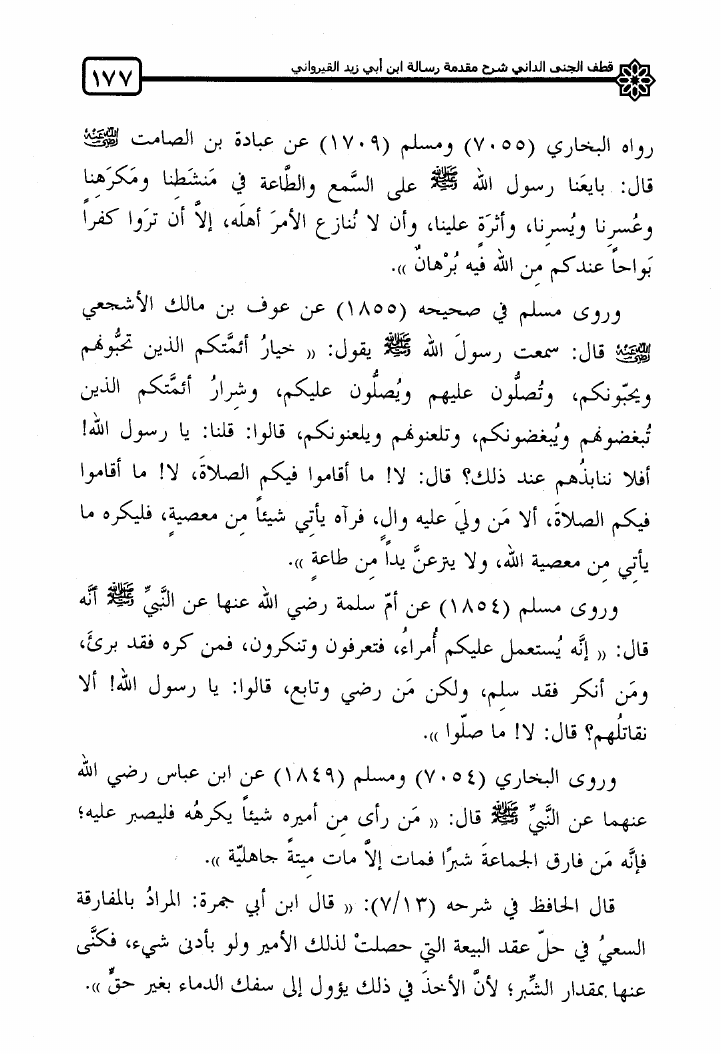 قطف الجنى الداني شرح مقدمة رسالة ابن أبي زيد القيرواني
١٧٧
رواه البخاري (٧٠٥٥) ومسلم (١٧٠٩) عن عبادة بن الصامت رضي الله عنه
قال: بايعَنا رسول الله ﷺ على السَّمع والطَّاعة في مَنشَطِنا ومَكرَهِنا
وعُسرِنا ويُسرِنا، وأثرَةٍ علينا، وأن لا نُنازع الأمرَ أهلَه، إلاَّ أن تروا كفراً
بَواحاً عندكم مِن الله فيه بُرْهانٌ ».
وروى مسلم في صحيحه (١٨٥٥) عن عوف بن مالك الأشجعي
رضي الله عنه قال: سمعت رسولَ الله ﷺ يقول: « خيارُ أئمَّتكم الذين تحبُّونهم
ويحبّونكم، وتُصلُّون عليهم ويُصلُّون عليكم، وشرارُ أئمَّتكم الذين
تُبغضونهم ويُبغضونكم، وتلعنونهم ويلعنونكم، قالوا: قلنا: يا رسول الله!
أفلا ننابذُهم عند ذلك؟ قال: لا! ما أقاموا فيكم الصلاةَ، لا! ما أقاموا
فيكم الصلاةَ، ألا مَن وليَ عليه والٍ، فرآه يأتي شيئاً مِن معصيةٍ، فليكره ما
يأتِي مِن معصية الله، ولا ينزعنَّ يداً مِن طاعةٍ ».
وروى مسلم (١٨٥٤) عن أمّ سلمة رضي الله عنها عن النَّبيِّ ﷺ أنَّه
قال: « إنَّه يُستعمل عليكم أُمراءُ، فتعرفون وتنكرون، فمن كره فقد برئَ،
ومَن أنكر فقد سلِم، ولكن مَن رضي وتابع، قالوا: يا رسول الله! ألا
نقاتلُهم؟ قال: لا! ما صلّوا ».
وروى البخاري (٧٠٥٤) ومسلم (١٨٤٩) عن ابن عباس رضي الله
عنهما عن النَّبيِّ ﷺ قال: « مَن رأى مِن أميره شيئاً يكرهُه فليصبر عليه؛
فإنَّه مَن فارق الجماعةَ شبرًا فمات إلاَّ مات مِيتةً جاهليّة ».
قال الحافظ في شرحه (٧/١٣): « قال ابن أبي جمرة: المرادُ بالمفارقة
السعيُ في حلّ عقد البيعة التي حصلتْ لذلك الأمير ولو بأدنى شيء، فكنَّى
عنها بمقدار الشِّبر؛ لأنَّ الأخذَ في ذلك يؤول إلى سفك الدماء بغير حقٍّ ».